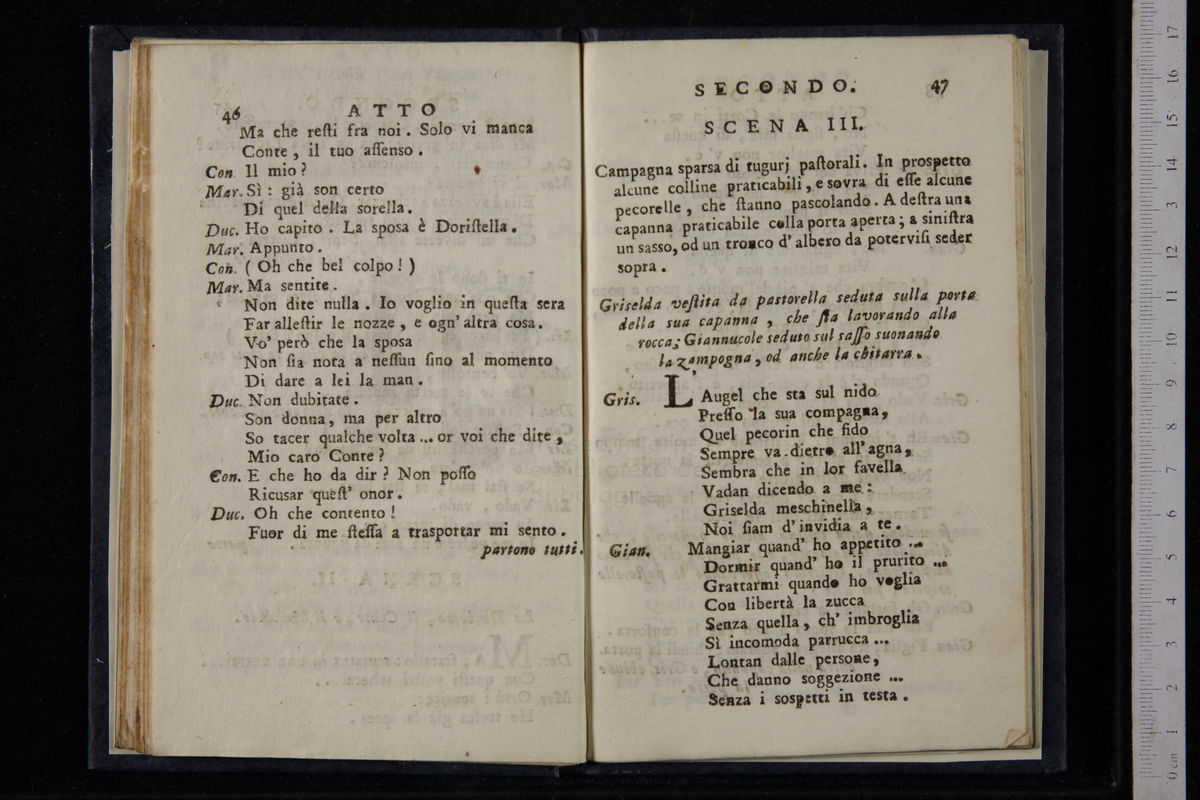 46 ATTO
Ma che reſti fra noi. Solo vi manca
Conte, il tuo aſſenso.
Con. Il mio?
Mar. Sì: già son certo
Di quel della sorella.
Duc. Ho capito. La sposa è Doriſtella.
Mar. Appunto.
Con. (Oh che bel colpo!)
Mar. Ma sentite.
Non dite nulla. Io voglio in queſta sera
Far alleſtir le nozze, e ogn' altra cosa.
Vo' però che la sposa
Non ſia nota a neſſun ſino al momento
Di dare a lei la man.
Duc. Non dubitate.
Son donna, ma per altro
So tacer qualche volta... or voi che dite,
Mio caro Conte?
Con. E che ho da dir? Non poſſo
Ricusar queſt' onor.
Duc. Oh che contento!
Fuor di me ſteſſa a trasportar mi sento.
partono tutti.
SECONDO. 47
SCENA III.
Campagna sparsa di tugurj paſtorali. In prospetto
alcune colline praticabili, e sovra di eſſe alcune
pecorelle, che ſtanno pascolando. A deſtra una
capanna praticabile colla porta aperta; a siniſtra
un sasso, od un tronco d' albero da potervisi seder
sopra.
Griselda veſtita da pastorella seduta sulla porta
della sua capanna, che ſta lavorando alla
rocca; Giannucole seduto sul saſſo suonando
la zampogna, od anche la chitarra.
Gris. L'Augel che sta sul nido
Preſſo la sua compagna,
Quel pecorin che fido
Sempre va dietro all' agna,
Sembra che in lor favella
Vadan dicendo a me:
Griselda meschinella,
Noi ſiam d' invidia a te.
Gian. Mangiar quand' ho appetito...
Dormir quand' ho il prurito...
Grattarmi quando ho voglia
Con libertà la zucca
Senza quella, ch' imbroglia
Sì incomoda parrucca...
Lontan dalle persone,
Che danno soggezione...
Senza i sospetti in testa.